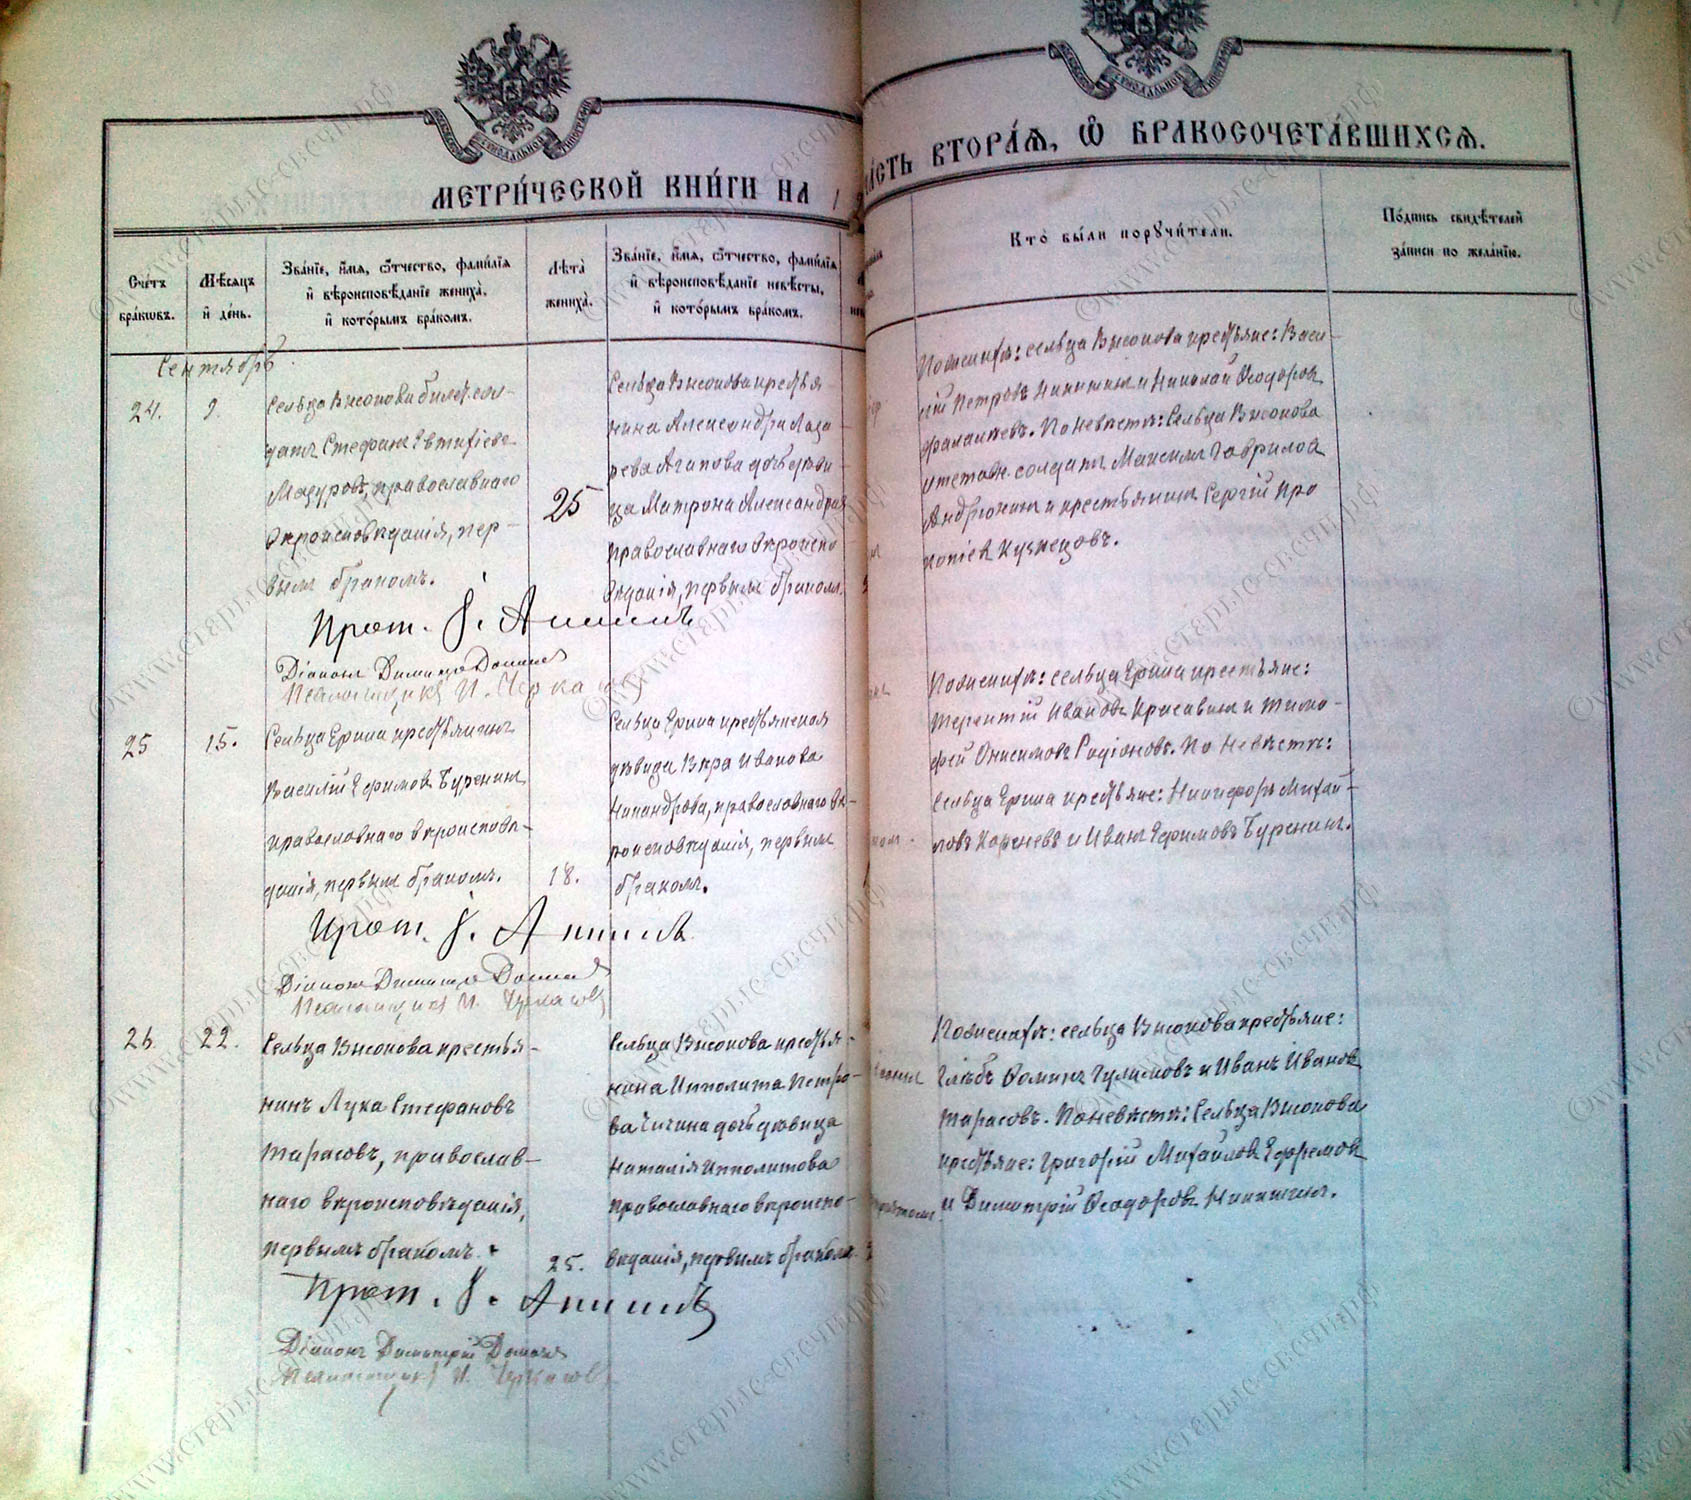 МЕТРИ́ЧЕСКОЙ КНИ́ГИ НА 1
ЧА́СТЬ ВТОРА́Я, Ѡ҆ БРАКОСОЧЕТА́ВШИХСЯ.
Сче́тъ
бра́кѡвъ.
Мѣ́сяцъ
и҆ де́нь.
Зва́нїе, и҆́мя, ѻ҆́тчество, фами́лїя
и҆ вѣроисповѣ́данїе жениха̀,
и҆ кото́рымъ бра́комъ.
Лѣта̀
жениха̀.
Зва́нїе, и҆́мя, ѻ҆́тчество, фами́лїя
и҆ вѣроисповѣ́данїе невѣ́сты,
и҆ кото́рымъ бра́комъ.
Кто̀ бы́ли порꙋчи́тели.
По́дпись свидѣ́телей
за́писи по жела́нїю.
Сентябрь.
24.
9.
Сельца Высокова билет. сол-
датъ Стефанъ Евтихіевъ
Мазуровъ, православнаго
вѣроисповѣданія, пер-
вымъ бракомъ.
25
Сельца Высокова крестья-
нина Александра Лаза-
рева Агапова дочь дѣви-
ца Матрона Александрова
православнаго вѣроиспо
вѣданія, первымъ бракомъ.
По женихѣ: сельца Высокова крестьяне: Васи-
лій Петровъ Никишинъ и Николай Ѳеодоровъ
. По невѣстѣ: Сельца Высокова
отставн. солдатъ Максимъ Гавриловъ
Андрюнинъ и крестьянинъ Сергій Про
копіевъ Кузнецовъ.
Прот. І.
Діаконъ Димитрій
Псаломщикъ И. Черкасовъ
25
15.
Сельца Ерина крестьянинъ
Василій Ефимовъ Буренинъ
православнаго вѣроисповѣ-
данія, первымъ бракомъ.
18.
Сельца Ерина крестьянская
дѣвица Вѣра Иванова
Никандрова, православнаго вѣ-
роисповѣданія, первымъ
бракомъ.
По женихѣ: сельца Ерина крестьяне:
Терентій Ивановъ Красавинъ и Тимо-
фей Онисимовъ Родіоновъ. По невѣстѣ:
Сельца Ерина крестьяне: Никифоръ Михай-
ловъ Кореневъ и Иванъ Ефимовъ Буренинъ.
Прот. І.
Діаконъ Димитрій
Псаломщикъ И. Черкасовъ
26.
22.
Сельца Высокова крестья-
нинъ Лука Стефановъ
Тарасовъ, православ-
наго вѣроисповѣданія,
первымъ бракомъ.
25.
Сельца Высокова крестья-
нина Ипполита Петро-
ва Чичина дочь дѣвица
Наталія Ипполитова
православнаго вѣроиспо-
вѣданія, первымъ бракомъ.
По женихѣ: сельца Высокова крестьяне:
Глѣбъ Ѳоминъ Гулимовъ и Иванъ Ивановъ
Тарасовъ. По невѣстѣ: Сельца Высокова
крестьяне: Григорій Михайловъ Ефремовъ
и Димитрій Ѳеодоровъ Никишинъ.
Прот. І.
Діаконъ Димитрій
Псаломщикъ И. Черкасовъ
©www.старыс-свсчи.рф